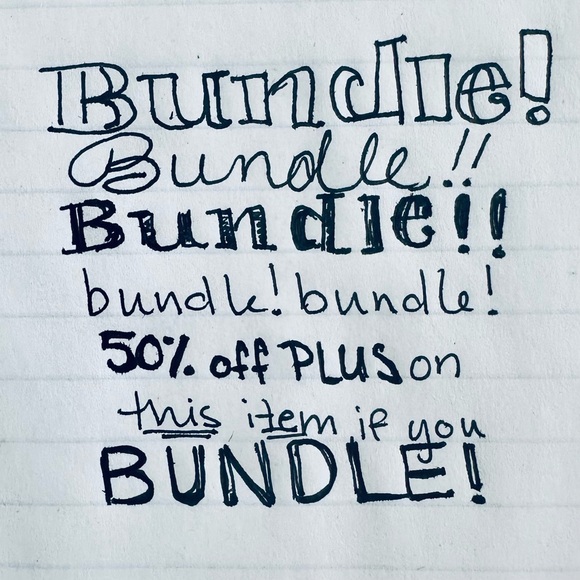 Bundle!
Bundle!!
Bundle!!
bundle! bundle!
50% off PLUS on
this item if you
BUNDLE!